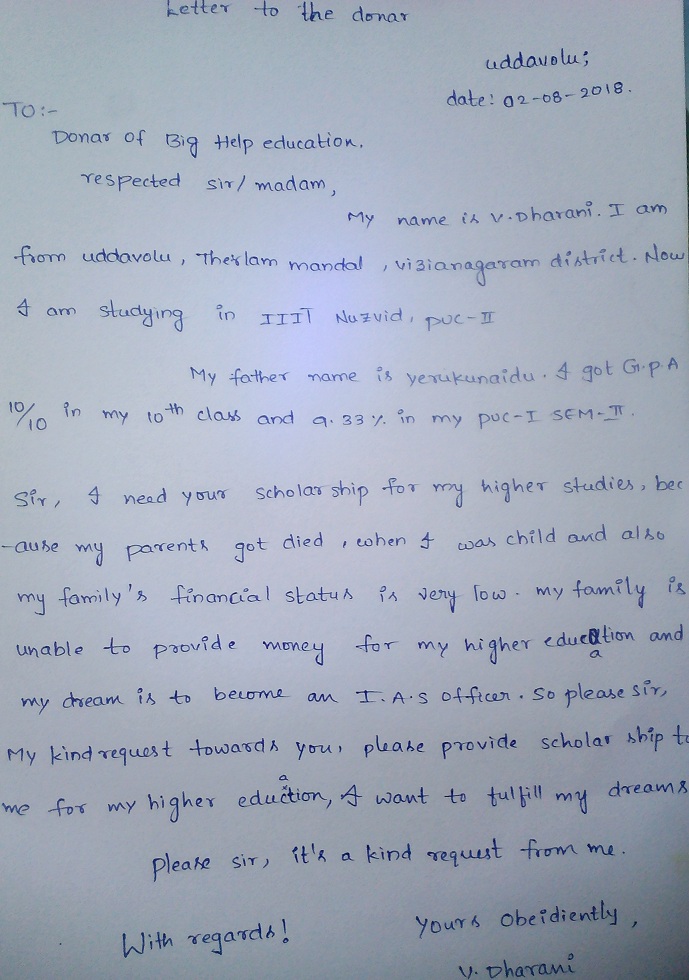 Letter to the donar
uddavolu;
date: 02-08-2018.
TO:-
Donar of Big Help education.
respected sir/madam,
My name is V.Dharani. I am
from uddavolu, Therlam mandal, vizianagaram district. Now
I am studying in IIIT Nuzvid, puc-II
My father name is yerukunaidu. I got G.p.A
10/10 in my 10th class and 9.33% in my puc-I SEM-II.
Sir, I need your scholarship for my higher studies, bec
-ause my parents got died, when I was child and also
my family's financial status is very low. my family is
unable to provide money for my higher education and
my dream is to become an I.A.S officer. So please sir,
My kind request towards you, please provide scholar ship to
me for my higher education, I want to fulfill my dreams
please sir, it's a kind request from me.
With regards! Yours Obeidiently,
V. Dharani